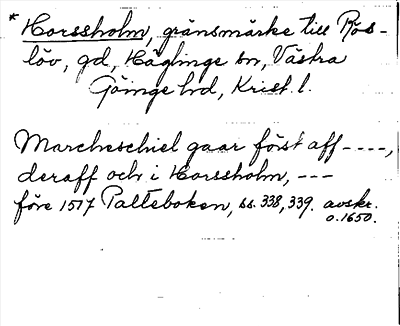 * Horssholm, gränsmärke till Rös-
löv, gd, Häglinge sn, Västra
Göinge hd, Krist. l.
Marcheschiel gaar först aff ----,
deraff och i Horssholm, ---
före 1517 Palteboken, ss. 338, 339. avskr.
o. 1650.